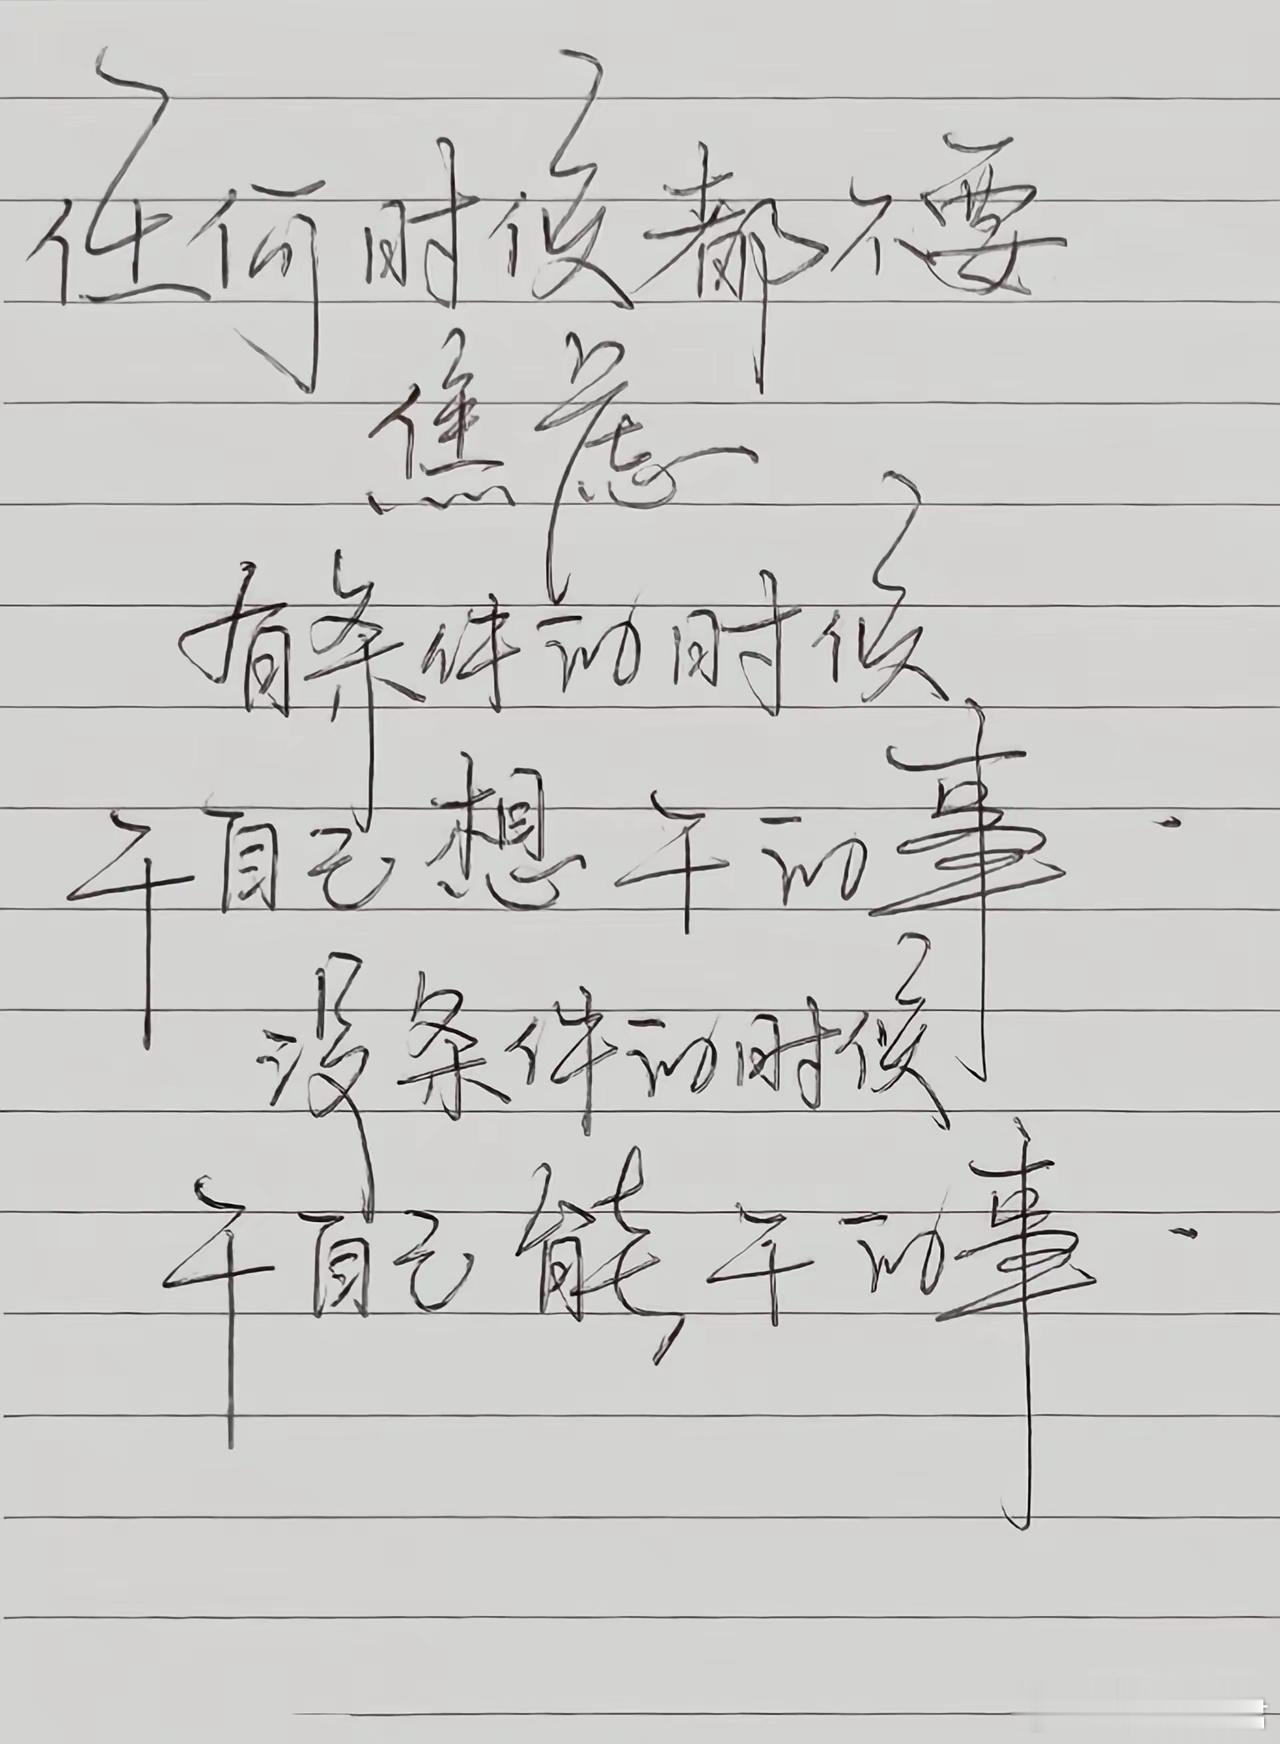 任何时候都不要
焦虑
有条件的时候
干自己想干的事.
没条件的时候
干自己能干的事.